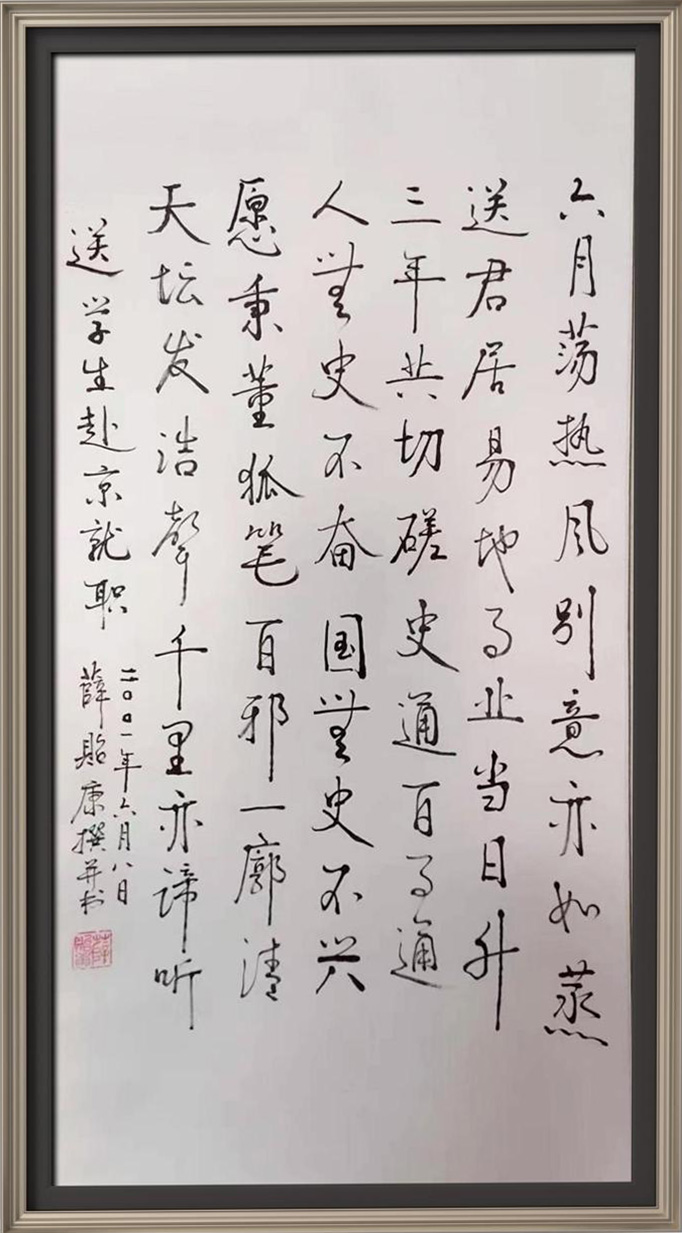 六月荡热风别意亦如蒸
送君居易地事业当日升
三年共切磋史通百事通
人無史不奋国無史不兴
愿秉董狐笔百邪一廓清
天坛发浩聲千里亦谛听
送学生赴京就职
二〇〇一年六月八日
薛贻康撰并书